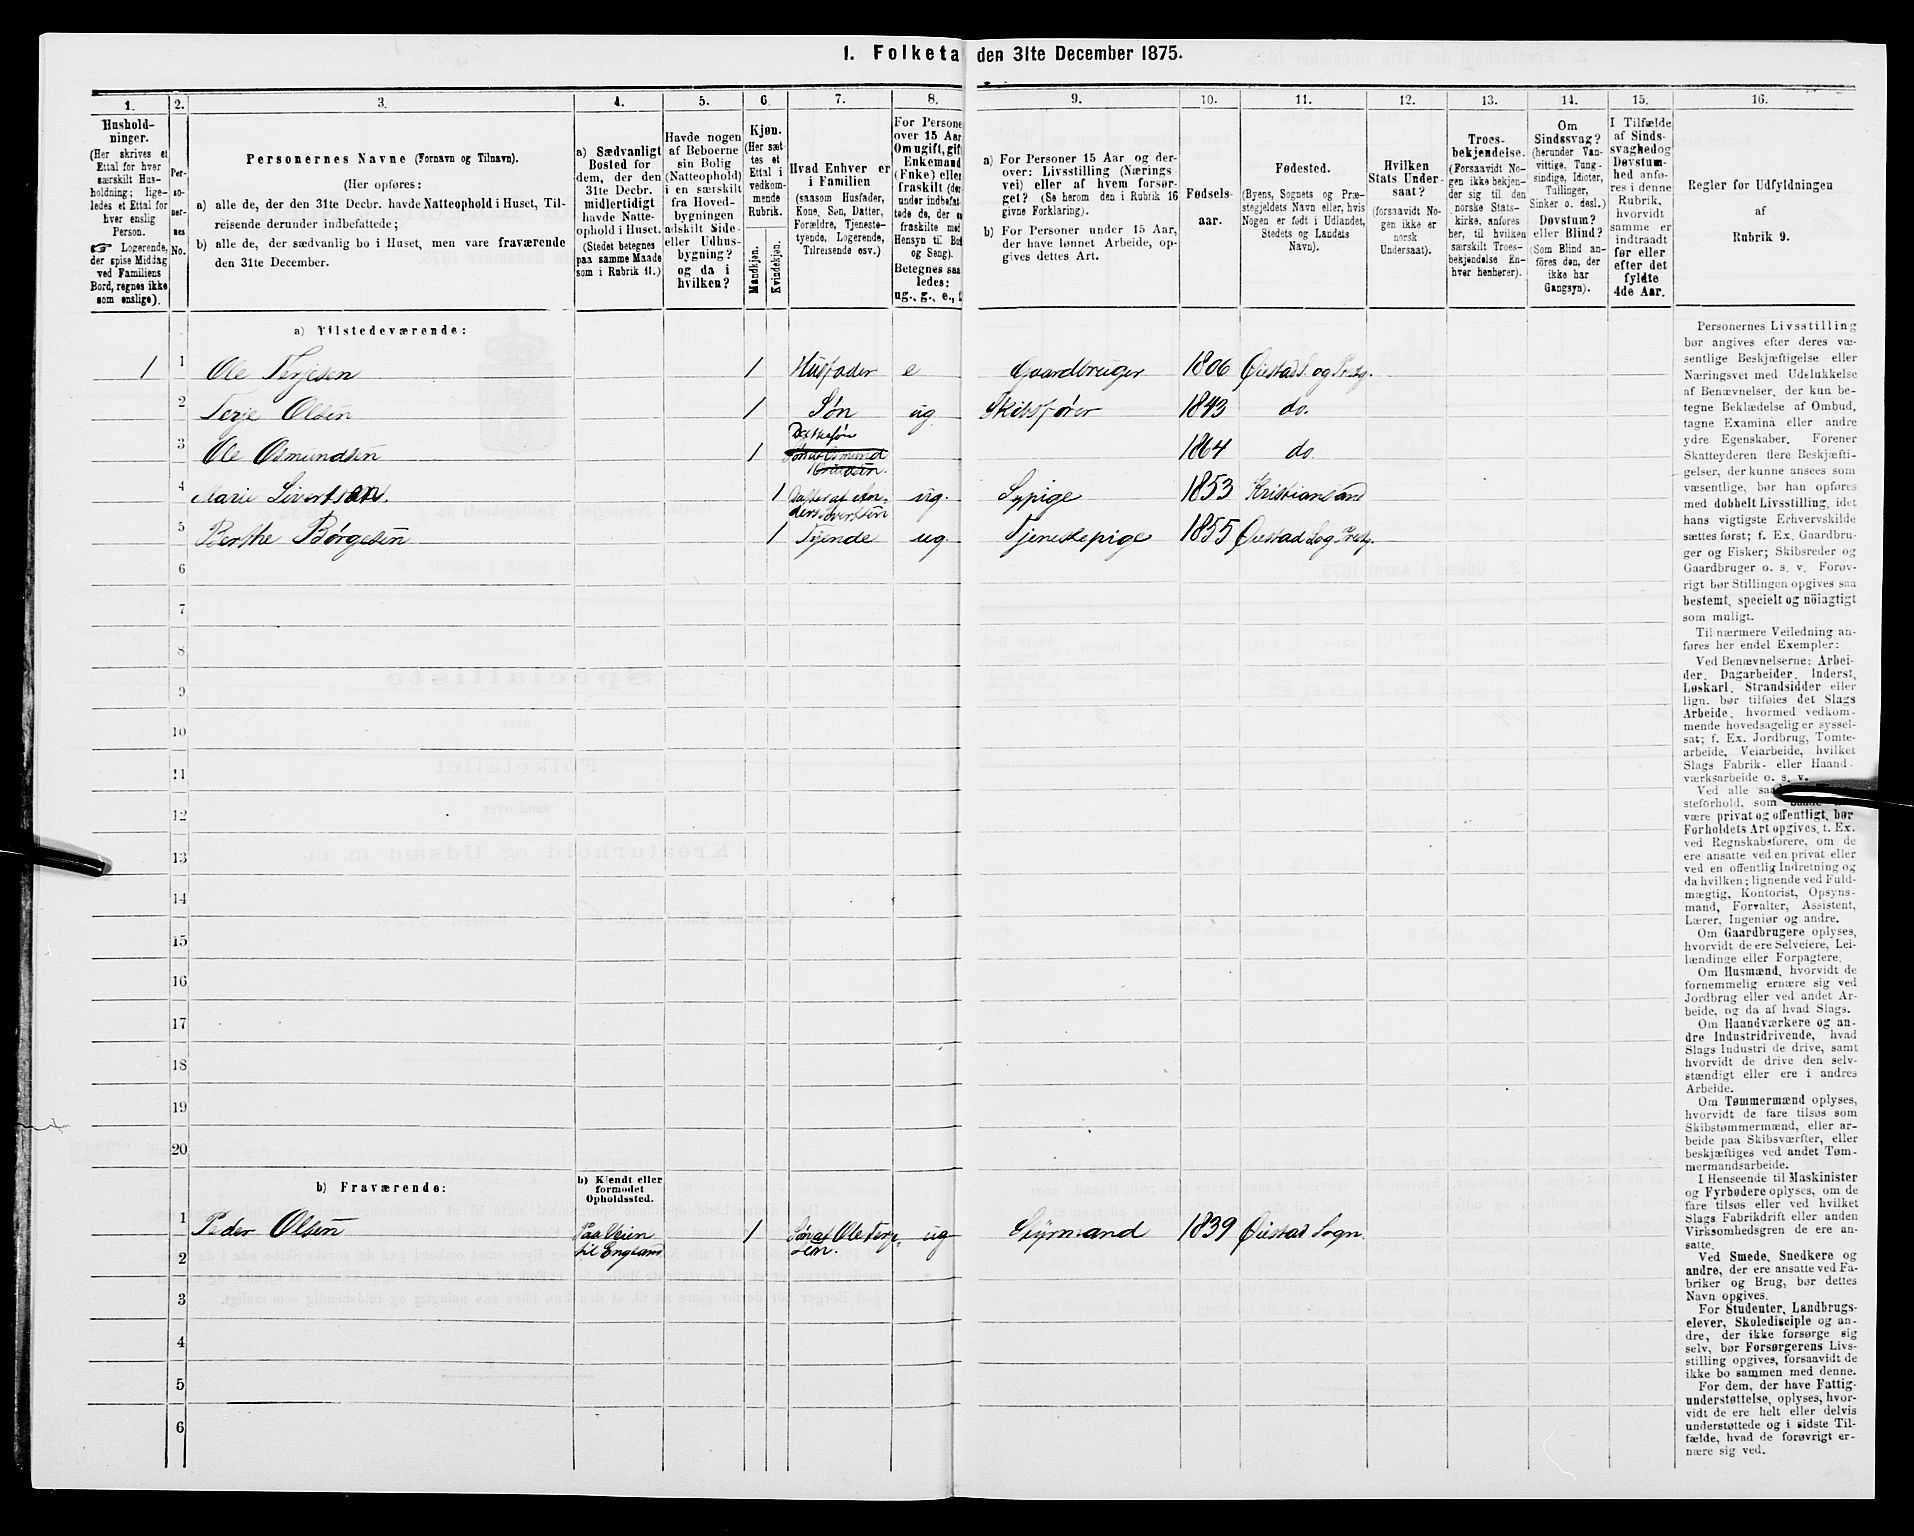 1. Folketa den 31te December 1875.
1. 2. 3. 4. 5. 6. 7. 8. 9. 10. 11. 12. 13. 14. 15. 16.
Hushold-
ninger.
(Her skrives et
Ettal for hver
særskilt Hus-
holdning; lige-
ledes et Ettal for
hver enslig
Person.
☞ Logerende,
der spise Middag
ved Familiens
Bord, regnes ikke
som enslige).
Per-
so-
ner-
nes
No.
Personernes Navne (Fornavn og Tilnavn).
(Her opføres:
a) alle de, der den 31te Decbr. havde Natteophold i Huset, Til-
reisende derunder indbefattede;
b) alle de, der sædvanlig bo i Huset, men vare fraværende
den 31te December.
a) Sædvanligt
Bosted for
dem, der den
31te Decbr.
midlertidigt
havde Natte-
ophold i Huset.
(Stedet betegnes
paa samme Maade
som i Rubrik 11.)
Havde nogen
af Beboerne
sin Bolig
(Natteophold)
i en særskilt
fra Hoved-
bygningen
adskilt Side-
eller Udhus-
bygning?
og da i
hvilken?
Kjøn.
(Her sæt-
tes et
Ettal i
vedkom-
mende
Rubrik.
Mandkjøn.
Kvindekjøn.
Hvad Enhver er
i Familien
(saasom Husfader,
Kone, Søn, Datter,
Forældre, Tjeneste-
tyende, Logerende,
Tilreisende esv.)
For Persone
over 15 Aar
Om ugift, gif
Enkemand
(Enke) elle
fraskilt (der
under indbefat
tede de, der e
fraskilte med
Hensyn til Bo
og Seng).
Betegnes saa
ledes:
ug., g., e.,
a) For Personer 15 Aar og der-
over: Livsstilling (Nærings-
vei) eller af hvem forsør-
get? (Se herom den i Rubrik 16
givne Forklaring).
b) For Personer under 15 Aar,
der have lønnet Arbeide, op-
gives dettes Art.
Fødsels-
aar.
Fødested.
(Byens, Sognets og Præ-
stegjeldets Navn eller, hvis
Nogen er født i Udlandet,
Stedets og Landets
Navn).
Hvilken
Stats Under-
saat?
(forsaavidt No-
gen ikke er
norsk
Undersaat).
Troes-
bekjendelse.
(Forsaavidt No-
gen ikke bekjen-
der sig til den
norske Stats-
kirke, anføres
her, til hvilken
særskilt Troes-
bekjendelse En-
hver henhører).
Om
Sindssvag?
(herunder Van-
vittige, Tung-
sindige, Idioter,
Tullinger,
Sinker o. desl.)
Døvstum?
eller Blind?
(Som Blind an-
føres den, der
ikke har
Gangsyn).
I Tilfælde
af Sinds-
svaghed og
Døvstum-
hed anfø-
res i denne
Rubrik,
hvorvidt
samme er
indtraadt
før eller
efter det
fyldte
4de Aar.
Regler for Udfyldningen
af
Rubrik 9.
a) Tilstedeværende:
1 1 Ole Terjesen 1 Husfader e Gaardbruger 1806 Øiestad S. og Prstg.
2 Terje Olsen 1 Søn ug. Skibsfører 1843 do.
3 Ole Osmundsen 1 Dattersøn 1864 do
4 Marie Sivertsen. 1 Datter af An-
ders Sivertsen ug. Sypige 1853 Kristiansand
5 Berthe Børgesen 1 Tjende ug. Tjenestepige 1855 Øiestad S. og Prstg.
6
7
8
9
10
11
12
13
14
15
16
17
18
19
20
b) Fraværende:
b) Kjendt eller
formodet
Opholdssted.
1 Peder Olsen Paa Veien
til England 1 Søn af Ole Terje-
sen. ug Styrmand 1839 Øiestad Sogn.
2
3
4
5
6
Personernes Livsstilling
bør angives efter deres væ-
sentlige Beskjæftigelse eller
Næringsvei med Udelukkelse
af Benævnelser, der kun be-
tegne Beklædelse af Ombud,
tagne Examina eller andre
ydre Egenskaber. Forener
Skatteyderen flere Beskjæfti-
gelser, der kunne ansees som
væsentlige, bør han opføres
med dobbelt Livsstilling, idet
hans vigtigste Erhvervskilde
sættes først; f. Ex. Gaardbru-
ger og Fisker; Skibsreder og
Gaardbruger o. s. v. Forøv-
rigt bør Stillingen opgives saa
bestemt, specielt og nöiagtigt
som muligt.
Til nærmere Veiledning an-
føres her endel Exempler:
Ved Benævnelserne: Arbei-
der, Dagarbeider, Inderst,
Løskarl, Strandsidder eller
lign. bør tilføies det Slags
Arbeide, hvormed vedkom-
mende hovedsagelig er syssel-
sat; f. Ex. Jordbrug, Tomte-
arbeide, Veiarbeide, hvilket
Slags Fabrik- eller Haand-
værksarbeide o. s. v.
Ved alle saa
steforhold, som
være privat og offentligt, bør
Forholdets Art opgives, t. Ex.
ved Regnskabsførere, om de
ere ansatte ved en privat eller
ved en offentlig Indretning og
da hvilken; lignende ved Fuld-
mægtig, Kontorist, Opsyns-
mand, Forvalter, Assistent,
Lærer, Ingeniør og andre.
Om Gaardbrugere oplyses,
hvorvidt de ere Selveiere, Lei-
lændinge eller Forpagtere.
Om Husmænd, hvorvidt de
fornemmelig ernære sig ved
Jordbrug eller ved andet Ar-
beide, og da af hvad Slags.
Om Haandværkere og an-
dre Industridrivende, hvad
Slags Industri de drive, samt
hvorvidt de drive den selv-
stændigt eller ere i andres
Arbeide.
Om Tømmermænd oplyses,
hvorvidt de fare tilsøs som
Skibstømmermænd, eller ar-
beide paa Skibsværfter, eller
beskjæftiges ved andet Tøm-
mermandsarbeide.
I Henseende til Maskinister
og Fyrbødere oplyses, om de
fare tilsøs eller ved hvilket
Slags Fabrikdrift eller anden
Virksomhedsgren de ere an-
satte.
Ved Smede, Snedkere og
andre, der ere ansatte ved Fa-
briker og Brug, bør dettes
Navn opgives.
For Studenter, Landbrugs-
elever, Skoledisciple og an-
dre, der ikke forsørge sig
selv, bør Forsørgerens Livs-
stilling opgives, forsaavidt de
ikke bo sammen med denne.
For dem, der have Fattig-
understøttelse, oplyses, hvor-
vidt de ere helt eller delvis
understøttede og i sidste Til-
fælde, hvad de forøvrigt er-
nære sig ved.